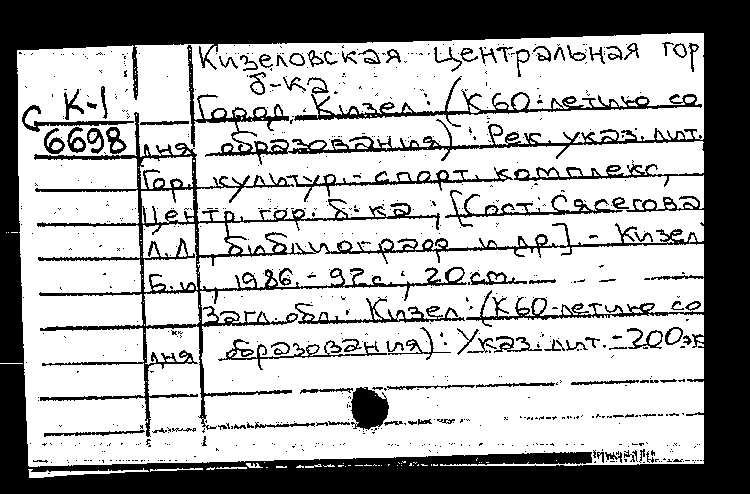 Кизеловская центральная гор.
б-ка.
К-1
Город Кизел : (К 60-летию со
С 6698
дня образования) : Рек. указ. лит.
Гор. культур.- спорт. комплекс,
Центр. гор. б-ка ; [Сост. Сясегова
Л.Л., библиограф и др.]. - Кизел
Б.и., 1986.- 92с. ; 20см.
Загл. обл.: Кизел : (К 60-летию со
дня образования) : Указ. лит. - 200эк